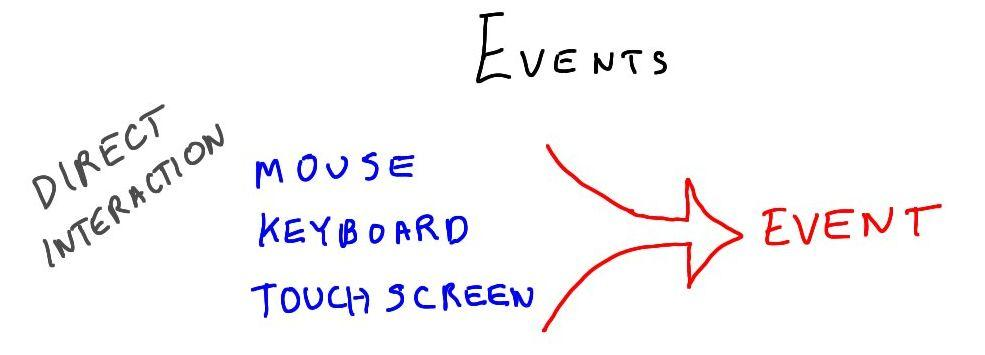 EVENTS
DIRECT
INTERACTION
MOUSE
KEYBOARD
TOUCH SCREEN
EVENT